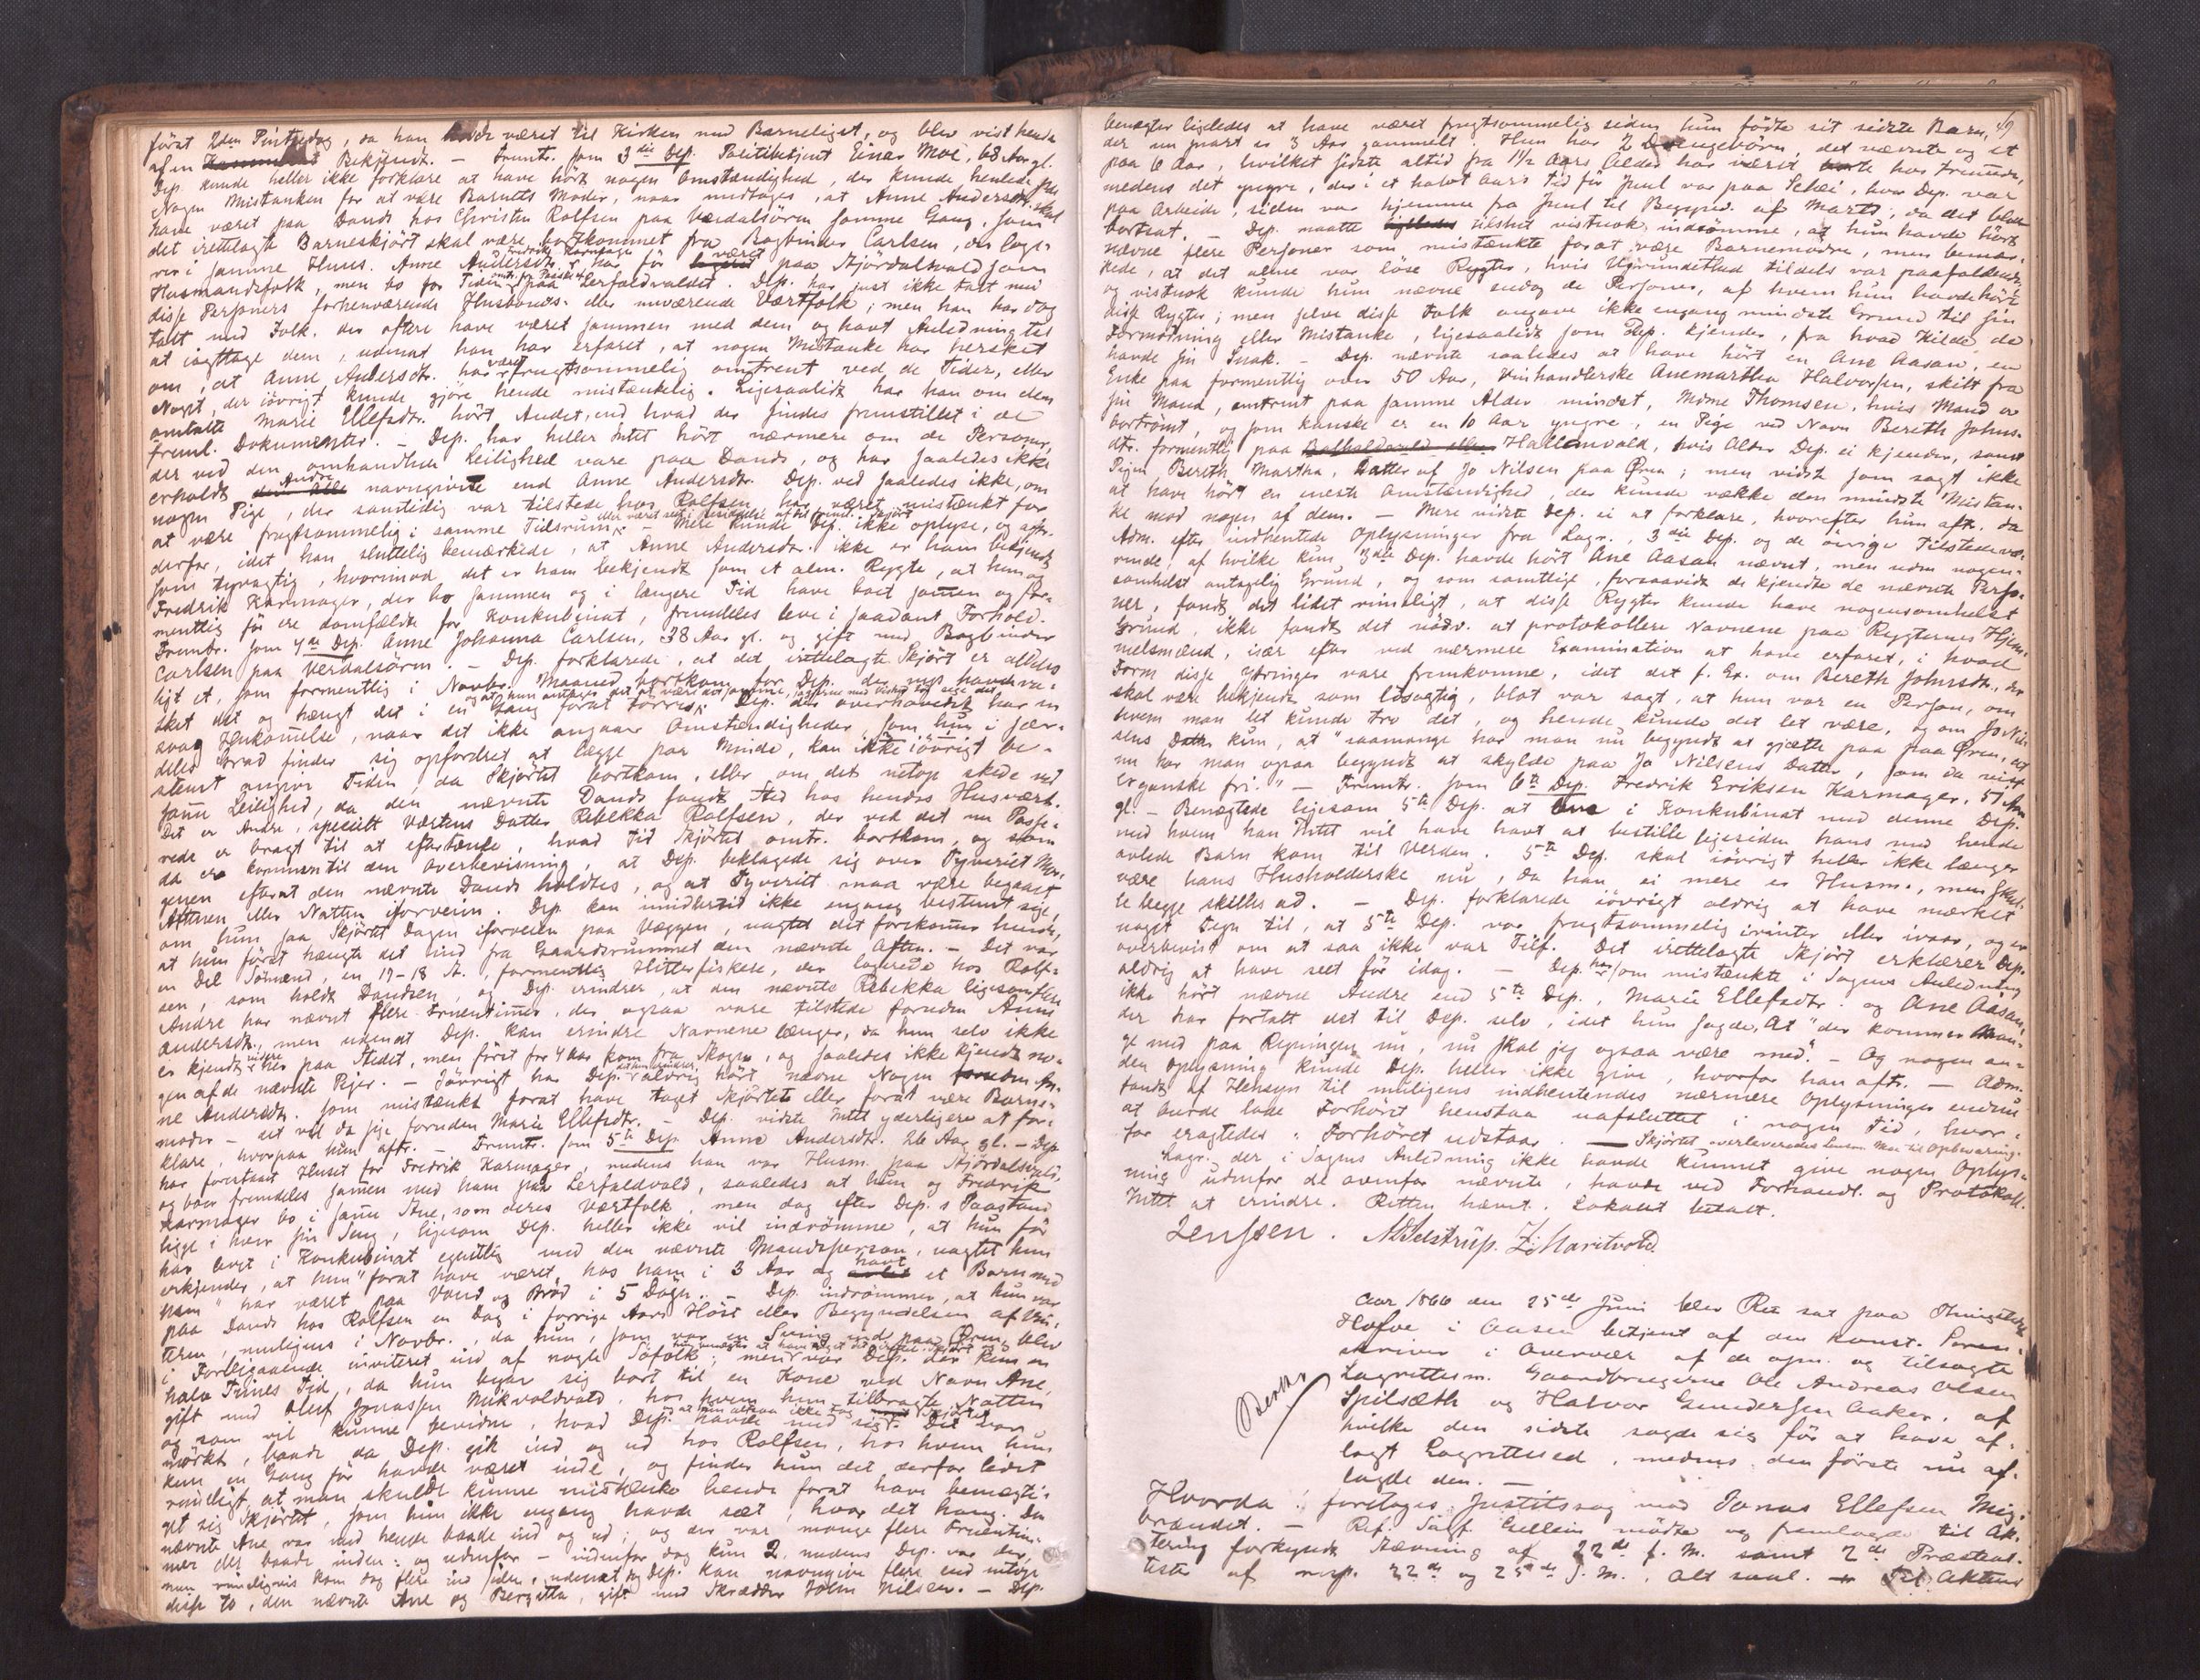 først 2den Pintsedag, da han havde været til Kirken med Barneliget, og blev vist hende
af en Bekjendt. — Fremtr. som 3die Dep. Politibetjent Einar Moe, 68 Aar gl.
Dep. kunde heller ikke forklare at have hørt nogen Omstændighed, der kunde henlede paa
Nogen Mistanken for at være Barnets Moder, naar undtages, at Anne Andersdtr. skal
have været paa Dands hos Christen Rolfsen paa Værdalsøren samme Gang, som
det irettelagte Barneskjørt skal være bortkommet fra Bogbinder Carlsen, der loge-
rer i samme Huus. Anne Andersdtr. og Fredrik Karmager har før været paa Stjørdalsvald som
Husmandsfolk, men bo for Tiden paa Lerfaldvaldet. Dep. har just ikke talt med
disse Personers forhenværende Husbonds- eller nuværende Værtfolk; men han har dog
talt med Folk, der oftere have været sammen med dem og havt Anledning til
at iagttage dem, uden at han har erfaret, at nogen Mistanke har hersket
om, at Anne Andersdtr. har været frugtsommelig omtrent ved de Tider, eller
Noget, der iøvrigt kunde gjøre hende mistænkelig. Ligesaalidt har han om den
omtalte Marie Ellefsdtr. hørt Andet, end hvad der findes fremstillet i de
freml. Dokumenter. — Dep. har heller Intet hørt nærmere om de Personer,
der ved den omhandlede Leilighed vare paa Dands, og har saaledes ikke
erholdt Andre navngivne end Anne Andersdtr. Dep. ved saaledes ikke, om
nogen Pige, der samtidig var tilstede hos Rolfsen, har været mistænkt for
at være frugtsommelig i samme Tidsrum, eller været seet i Besiddelse af det freml. Skjørt. — Mere kunde Dep. ikke oplyse, og aftr.
derfor, idet han sluttelig bemærkede, at Anne Andersdtr. ikke er ham bekjendt
som tyvagtig, hvorimod det er ham bekjendt som et alm. Rygte, at hun og
Fredrik Karmager, der bo sammen og i længere Tid have boet sammen og for-
mentlig før ere domfældte for Konkubinat, fremdeles leve i saadant Forhold.
Fremtr. som 4de Dep. Anne Johanna Carlsen, 38 Aar gl. og gift med Bogbinder
Carlsen paa Verdalsøren. — Dep. forklarede, at det irettelagte Skjørt er aldeles
ligt et, som formentlig i Novbr. Maaned bortkom for Dep. der nys havde va-
sket det og hængt det i en Gang forat tørres, og at hun antager det at være det samme. Dep. der overhovedet har en
svag Hukommelse, naar det ikke angaar Omstændigheder, som hun i sær-
deles Grad finder sig opfordret at lægge paa Minde, kan ikke iøvrigt be-
stemt angive Tiden, da Skjørtet bortkom, eller om det netop skede ved
samme Leilighed, da den nævnte Dands fandt Sted hos hendes Husvært.
Det er Andre, specielt Værtens Datter Rebekka Rolfsen, der ved det nu Passe-
rede er bragt til at eftertænke, hvad Tid Skjørtet omtr. bortkom, og som
da er kommen til den Overbevisning, at Dep. beklagede sig over Tyveriet Mor-
genen efterat den nævnte Dands holdtes, og at Tyveriet maa være begaaet
Aftenen eller Natten iforveien. Dep. kan imidlertid ikke engang bestemt sige,
om hun saa Skjørtet Dagen iforveien paa Væggen, uagtet det forekommer hende,
at hun først hængte det ind fra Gaardsrummet den nævnte Aften. — Det var
en Del Sømænd, en 17-18 St., formentlig Hitterfiskere, der logerede hos Rolf-
sen, som holdt Dandsen, og Dep. erindrer, at den nævnte Rebekka ligesom flere
Andre har nævnt flere Fruentimmer, der ogsaa vare tilstede foruden Anne
Andersdtr., men uden at Dep. kan erindre Navnene længer, da hun selv ikke
er kjendt videre her paa Stedet, men først for 4 Aar kom fra Skogn, og saaledes ikke kjendte no-
gen af de nævnte Piger. — Iøvrigt har Dep. aldrig hørt nævne Nogen foruden An-
ne Andersdtr. som mistænkt forat have taget Skjørtet eller forat være Barne-
moder — det vil da sige foruden Marie Ellefsdtr. — Dep. vidste Intet yderligere at for-
klare, hvorpaa hun aftr. — Fremtr. som 5te Dep. Anne Andersdtr. 26 Aar gl. — Dep.
har forestaaet Huset for Fredrik Karmager, medens han var Husm. paa Stjørdalsvald,
og boer fremdeles sammen med ham paa Lerfaldvald, saaledes at hun og Fredrik
Karmager bo i samme Stue, som deres Værtfolk, men dog efter Dep.s Paastand
ligge i hver sin Seng, ligesom Dep. heller ikke vil indrømme, at hun før
har levet i Konkubinat egentlig med den nævnte Mandsperson, uagtet hun
erkjender, at hun "forat have været hos ham i 3 Aar og havt et Barn med
ham" har været paa Vand og Brød i 5 Døgn. — Dep. indrømmer, at hun var
paa Dands hos Rolfsen en Dag i forrige Aars Høst eller Begyndelsen af Vin-
teren, muligens i Novbr., da hun, som var en Sving ned paa Øren, blev
i Forbigaaende inviteret ind af nogle Søfolk; men var Dep. der kun en
halv Times Tid, da hun begav sig bort til en Kone ved Navn Ane,
gift med Oluf Jonassen Mikvoldvald, hos hvem hun tilbragte Natten
og som vil kunne bevidne, hvad Dep. havde med sig. Det var
mørkt, baade da Dep. gik ind og ud hos Rolfsen, hos hvem hun
kun en Gang før havde været inde, og finder hun det derfor lidet
rimeligt, at man skulde kunne mistænke hende forat have bemægti-
get sig Skjørtet, som hun ikke engang havde seet, hvor det hang. Den
nævnte Ane var med hende baade ind og ud; og der var mange flere Fruentim-
mer der baade inden- og udenfor — udenfor dog kun 2, medens Dep. var der,
men rimeligvis kom dog flere ind siden, uden at dog Dep. kan navngive flere end netop
disse to, den nævnte Ane og Bergitta, gift med Skrædder John Nilsen. — Dep.
49
benægter ligeledes at have været frugtsommelig siden hun fødte sit sidste Barn,
der nu snart er 3 Aar gammelt. Hun har 2 Drengebørn, det nævnte og et
paa 6 Aar, hvilket sidste altid fra 1½ Aars Alder har været borte hos Fremmede,
medens det yngre, der i et halvt Aars Tid før Juul var paa Schei, hvor Dep. var
paa Arbeide, siden var hjemme fra Juul til Begynd. af Marts, da det blev
bortsat. — Dep. maatte tilsidst vistnok indrømme, at hun havde hørt
nævne flere Personer som mistænkte forat være Barnemødre, men bemær-
kede, at det alene var løse Rygter, hvis Ugrundethed tildels var paafaldende,
og vistnok kunde hun nævne endog de Personer, af hvem hun havde hørt
disse Rygter; men selve disse Folk angave ikke engang mindste Grund til sin
Formodning eller Mistanke, ligesaalidt som Dep. kjender, fra hvad Kilde de
havde sin Snak. — Dep. nævnte saaledes at have hørt en Ane Aasan, en
Enke paa formentlig over 50 Aar, Vinhandlerske Anemartha Halvorsen, skilt fra
sin Mand, omtrent paa samme Alder mindst, Mdme Thomsen, hvis Mand er
bortrømt, og som kanske er en 10 Aar yngre, en Pige ved Navn Bereth Johns-
dtr. formentlig paa Hallemvald, hvis Alder Dep. ei kjender, samt
Pigen Bereth Martha, Datter af Jo Nilsen paa Øren; men vidste som sagt ikke
at have hørt en eneste Omstændighed, der kunde vække den mindste Mistan-
ke mod nogen af dem. — Mere vidste Dep. ei at forklare, hvorefter hun aftr. da
Adm. efter indhentede Oplysninger fra Lagr., 3die Dep. og de øvrige Tilstedevæ-
rende, af hvilke kun 3die Dep. havde hørt Ane Aasan nævnt, men uden nogen-
somhelst antagelig Grund, og som samtlige, forsaavidt de kjendte de nævnte Perso-
ner, fandt det lidet rimeligt, at disse Rygter kunde have nogensomhelst
Grund, ikke fandt det nødv. at protokollere Navnene paa Rygternes Hjem-
melsmænd, især efter ved nærmere Examination at have erfaret, i hvad
Form disse Ytringer vare fremkomne, idet det f. Ex. om Bereth Johnsdtr., der
skal være bekjendt som løsagtig, blot var sagt, at hun var en Person, om
hvem man let kunde tro det, og hende kunde det let være, og om Jo Nil-
sens Datter kun, at "saamange har man nu begyndt at gjætte paa paa Øren, at
nu har man ogsaa begyndt at skylde paa Jo Nilsens Datter, som da vist
er ganske fri." — Fremtr. som 6te Dep. Fredrik Eriksen Karmager, 57 Aar
gl. — Benægtede ligesom 5te Dep. at leve i Konkubinat med denne Dep.
med hvem han Intet vil have havt at bestille ligesiden hans med hende
avlede Barn kom til Verden. 5te Dep. skal iøvrigt heller ikke længer
være hans Husholderske nu, da han ei mere er Husm., men skul-
le begge skilles ad. — Dep. forklarede iøvrigt aldrig at have mærket
noget Tegn til, at 5te Dep. var frugtsommelig ivinter eller ivaar, og er
overbevist om at saa ikke var Tilf. Det irettelagte Skjørt erklærer Dep.
aldrig at have seet før idag. — Dep. har som mistænkte i Sagens Anledning
ikke hørt nævne Andre end 5te Dep., Marie Ellefsdtr. og Ane Aasan,
der har fortalt det til Dep. selv, idet hun sagde, at "der kommer Man-
ge med paa Regningen nu, nu skal jeg ogsaa være med." — Og nogen an-
den Oplysning kunde Dep. heller ikke give, hvorfor han aftr. — Adm.
fandt af Hensyn til muligens indhentendes nærmere Oplysninger endnu
at burde lade Forhøret henstaa uafsluttet i nogen Tid, hvor-
for eragtedes: Forhøret udstaar. — Skjørtet overleveredes Lensm. Moe til Opbevaring.
Lagr. der i Sagens Anledning ikke havde kunnet give nogen Oplys-
ning udenfor de ovenfor nævnte, havde ved Forhandl. og Protokoll.
Intet at erindre. Retten hævet. Lokalet betalt.
Jenssen. N. Selstrup. Z: Maritvold
Aar 1866 den 25de Juni blev Ret sat paa Thingstedet
Hofve i Aasen betjent af den const. Soren-
skriver i Overvær af de opn. og tilsagte
Lagrettesm. Gaardbrugerne Ole Andreas Olsen
Spilsæth og Halvor Gundersen Aaker, af
hvilke den sidste sagde sig før at have af-
lagt Lagretteed, medens den første nu af-
lagde den. —
Hvorda: foretoges Justitssag mod Jonas Ellefsen Mig-
brændet. — Ref. Sagf. Gellein mødte og fremlagde til Ak-
tering forkyndt Stævning af 22de f. M. samt 2de Præsteat-
tester af resp. 22de og 25de f. M., alt saal. — Til Aktens